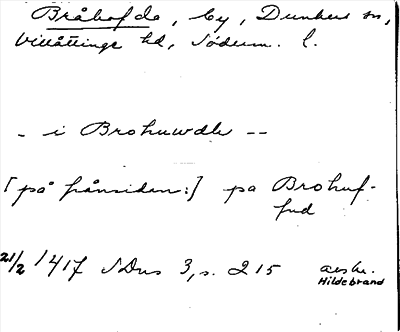 Bråhofda, by, Dunkers sn,
Villåttinge hd, Söderm. l.
- i Brohuwdh --
[på frånsidan:] pa Brohuf-
fud
21/2 1417 SDns 3, s. 215 avskr.
Hildebrand